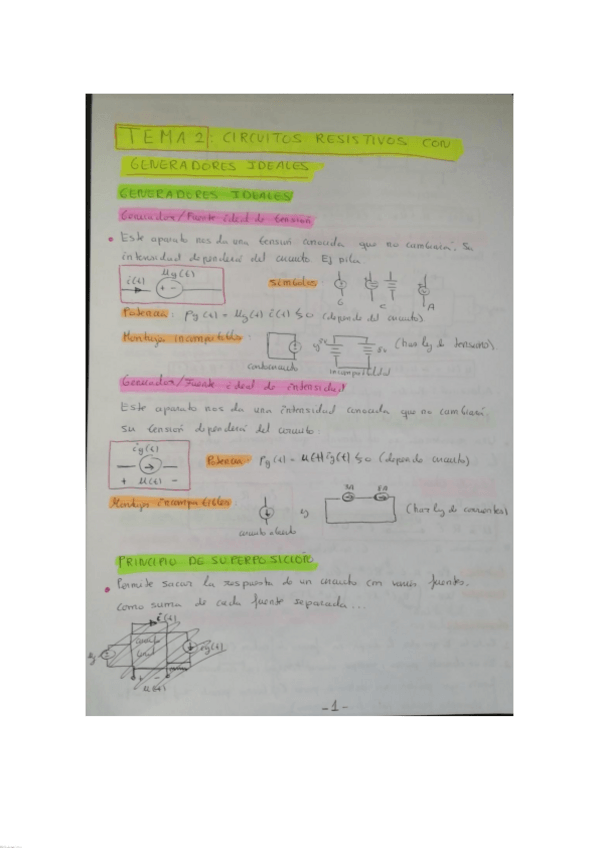 TEMA 2: CIRCUITOS RESISTIVOS CON
GENERADORES IDEALES
GENERADORES IDEALES
Generador/Fuente ideal de tensión
• Este aparato nos da una tensión conocida que no cambiará. Su
intensidad dependerá del circuito. Ej pila.
i(t) ug(t)
+ -
Símbolos
C C A
Potencia: Pg(t) = ug(t) i(t) ≶ 0 (depende del circuito).
Montajes incompatibles:
(has ley de tensiones).
cortocircuito incompatibilidad
Generador/Fuente ideal de intensidad
Este aparato nos da una intensidad conocida que no cambiará.
su tensión dependerá del circuito.
ig(t)
+ u(t) -
Potencia: Pg(t) = u(t) ig(t) ≶ 0 (depende circuito)
Montajes incompatibles:
ej
circuito abierto
PRINCIPIO DE SUPERPOSICIÓN
• Permite sacar la respuesta de un circuito con varias fuentes.
como suma de cada fuente separada...
i(t)
ig(t)
+ -
u(t)
-1-